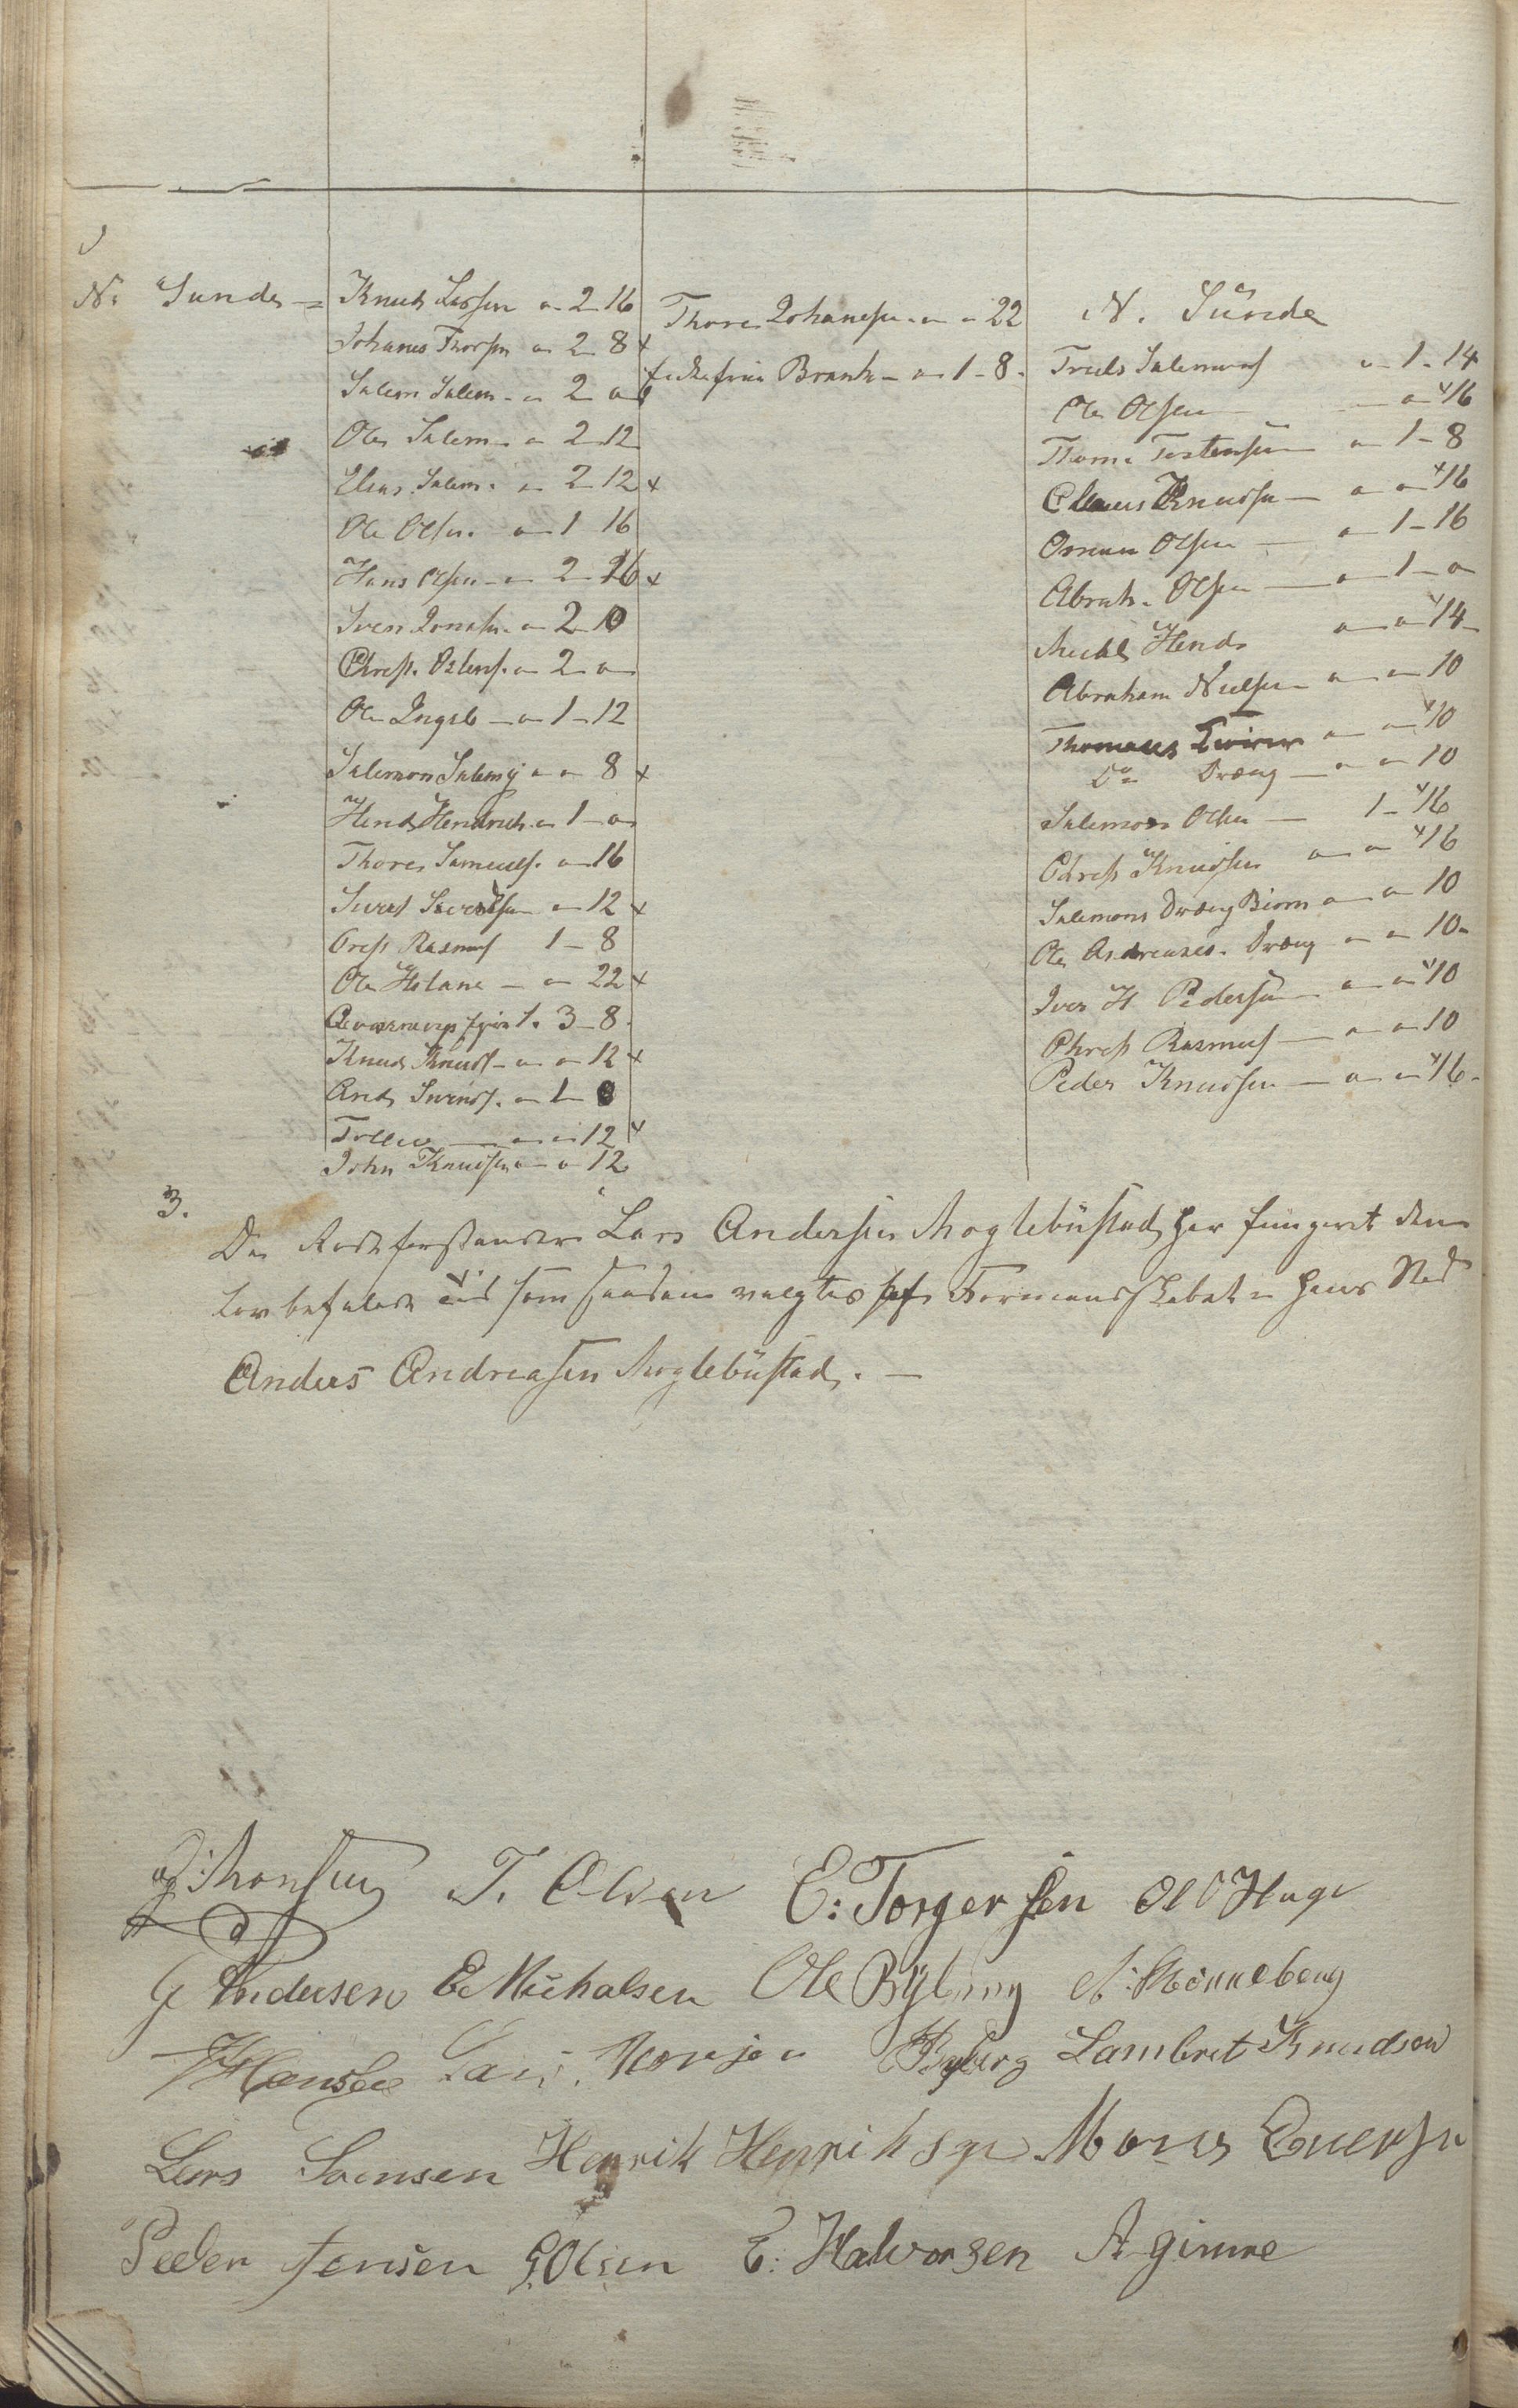 N. Sunde =
Knud Larsen " 2 - 16
Johanes Thorsen " 2 - 8 x
Salem Salem - " 2 "
Ole Salem - " 2 - 12
Elias Salem. " 2 - 12 x
Ole Olsen. " 1 16
Hans Olsen - " 2 - 16 x
Sven Jonasen. " 2 - 10
Christ. Ostens. " 2 "
Ole Ingeb - " 1 - 12
Salemon Salems " " 8 x
Hend Hendrich. " 1 - "
Thores Samuels. " 16
Sivert Sivertsen " 12 x
Crest Rasmus 1 - 8
Ole Holane - " 22 x
3 - 8.
Knud Knuds - " " 12 x
And Svends. " 1 - 0
Tollev - " " 12 x
John Knudsen " " 12
Thores Johanesen " " 22
Brank - " 1 - 8.
N. Sunde
Truls Salemons " 1 - 14
Ole Olsen - " x16
Thom. Tostensen " 1 - 8
Claus Knudsen - " " x16
Osmun Olsen - " 1 - 16
Abrah. Olsen - " 1 - "
Michl Hend " " x14
Abraham Nielsen " " 10
Thomas " " x10
Do Dræng - " " 10
Salemon Olsen - 1 - x16
Christ Knudsen " " x16
Salemons Dræng Biørn " " 10
Ole Andreases. Dræng " " 10
Iver H Pedersen " " x10
Christ Rasmus - " " 10
Peder Knudsen - " " x16.
3.
Da Rodeforstander Lars Andersen Moglebustad har fungeret den
lovbefalede tid som saadan valgtes af Formandskabet i hans Sted
Anders Andreasen Moglebustad. -
T. Olsen E: Torgersen Ol O Hage
G Andersen E Michalsen Ole Byberg N: Rønneberg
Hansen Lars. Monsen Byberg Lambret Knudsen
Lars Svensen Henrik Henriksen Mons Evensen
Peder Jensen G. Olsen E: Halvorsen A Gimre